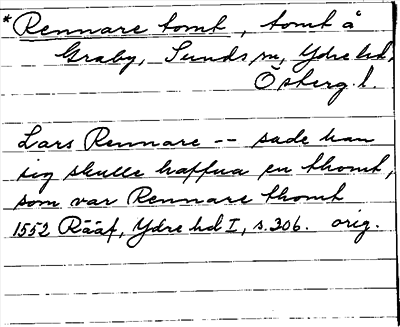 * Rennare tomt, tomt å
Graby, Sunds sn, Ydre hd,
Österg. l.
Lars Rennare -- sade han
sig skulle haffua en thomt,
som var Rennare thomt
1552 Rääf, Ydre hd I, s. 306. orig.